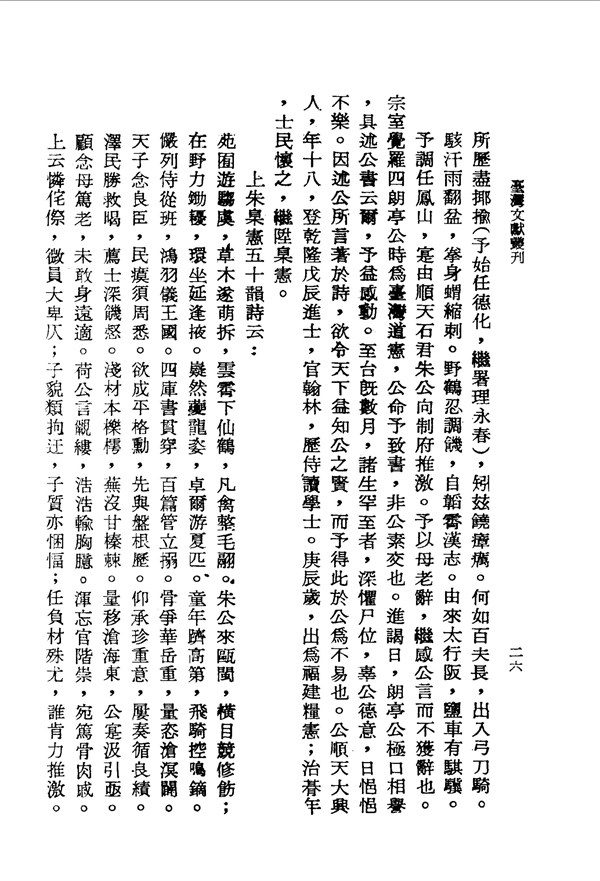 臺灣文獻叢刊
二六
所歷盡揶揄(予始任德化,繼署理永春),矧茲饒瘴癘。何如百夫長,出入弓刀騎。
駭汗雨翻盆,拳身蝟縮刺。野鶴忍調饑,自韜霄漢志。由來太行阪,鹽車有騏驥。
予調任鳳山,寔由順天石君朱公向制府推激。予以母老辭,繼感公言而不獲辭也。
宗室覺羅四朗亭公時爲臺灣道憲,公命予致書,非公素交也。進謁日,朗亭公極口相譽
,具述公書云爾,予益感動。至台旣數月,諸生罕至者,深懼尸位,辜公德意,日悒悒
不樂。因述公所言著於詩,欲令天下益知公之賢,而予得此於公爲不易也。公順天大興
人,年十八,登乾隆戊辰進士,官翰林,歷侍讀學士。庚辰歲,出爲福建糧憲;治朞年
,士民懷之,繼陞臬憲。
上朱臬憲五十韻詩云:
苑囿遊騶虞,草木遂萌拆,雲霄下仙鶴,凡禽整毛翮。朱公來甌閩,橫目競修飭;
在野力鋤耰,環坐延逢掖。嶷然夔龍姿,卓爾游夏匹。童年躋高第,飛騎控鳴鏑。
儼列侍從班,鴻羽儀王國。四庫書貫穿,百篇管立搦。骨爭華岳重,量恣滄溟闊。
天子念良臣,民瘼須周悉。欲成平格勳,先與盤根歷。仰承珍重意,屢奏循良績。
澤民勝救暍,薦士深饑惄。淺材本櫟樗,蕪沒甘榛棘。量移滄海東,公寔汲引亟。
顧念母篤老,未敢身遠適。荷公言覼縷,浩浩輸胸臆。渾忘官階崇,宛篤骨肉戚。
上云憐侘傺,微員大卑仄;子貌類拘迂,子質亦悃愊;任負材殊尤,誰肯力推激。